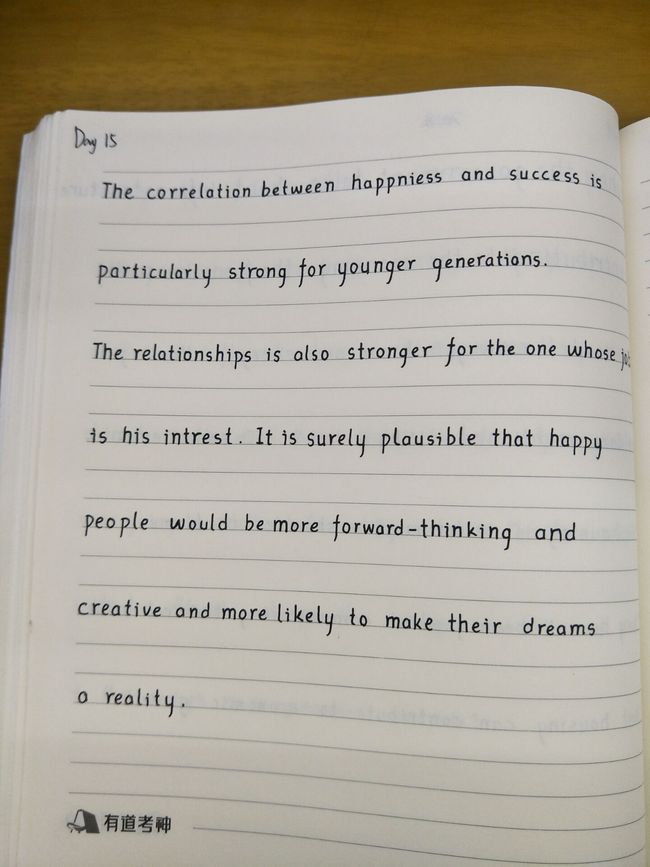 Day 15
The correlation between happniess and success is
particularly strong for younger generations.
The relationships is also stronger for the one whose
is his intrest. It is surely plausible that happy
people would be more forward-thinking and
creative and more likely to make their dreams
a reality.
有道考神